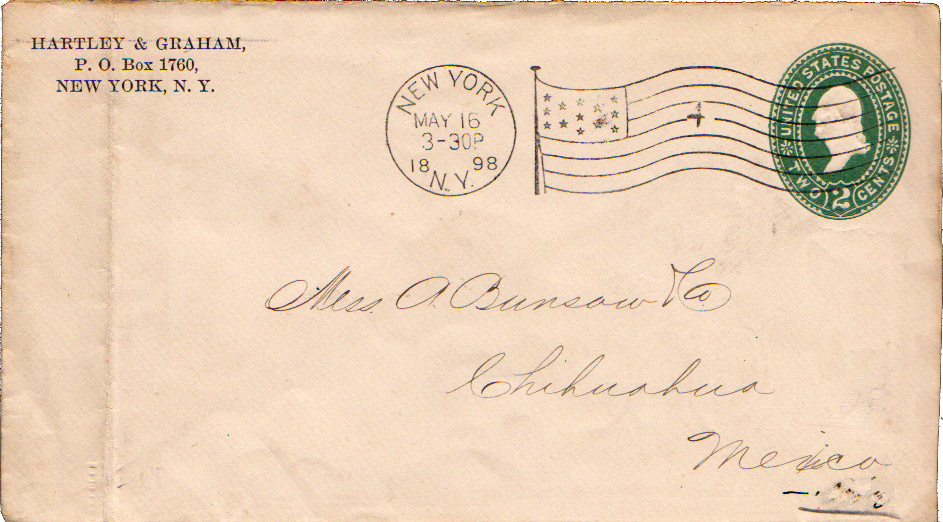 HARTLEY & GRAHAM,
P. O. Box 1760,
NEW YORK, N. Y.
NEW YORK
MAY 16
3-30P
18 98
N.Y.
4
UNITED STATES POSTAGE
TWO 2 CENTS
Mess. A Bunsow & Co.
Chihuahua
Mexico